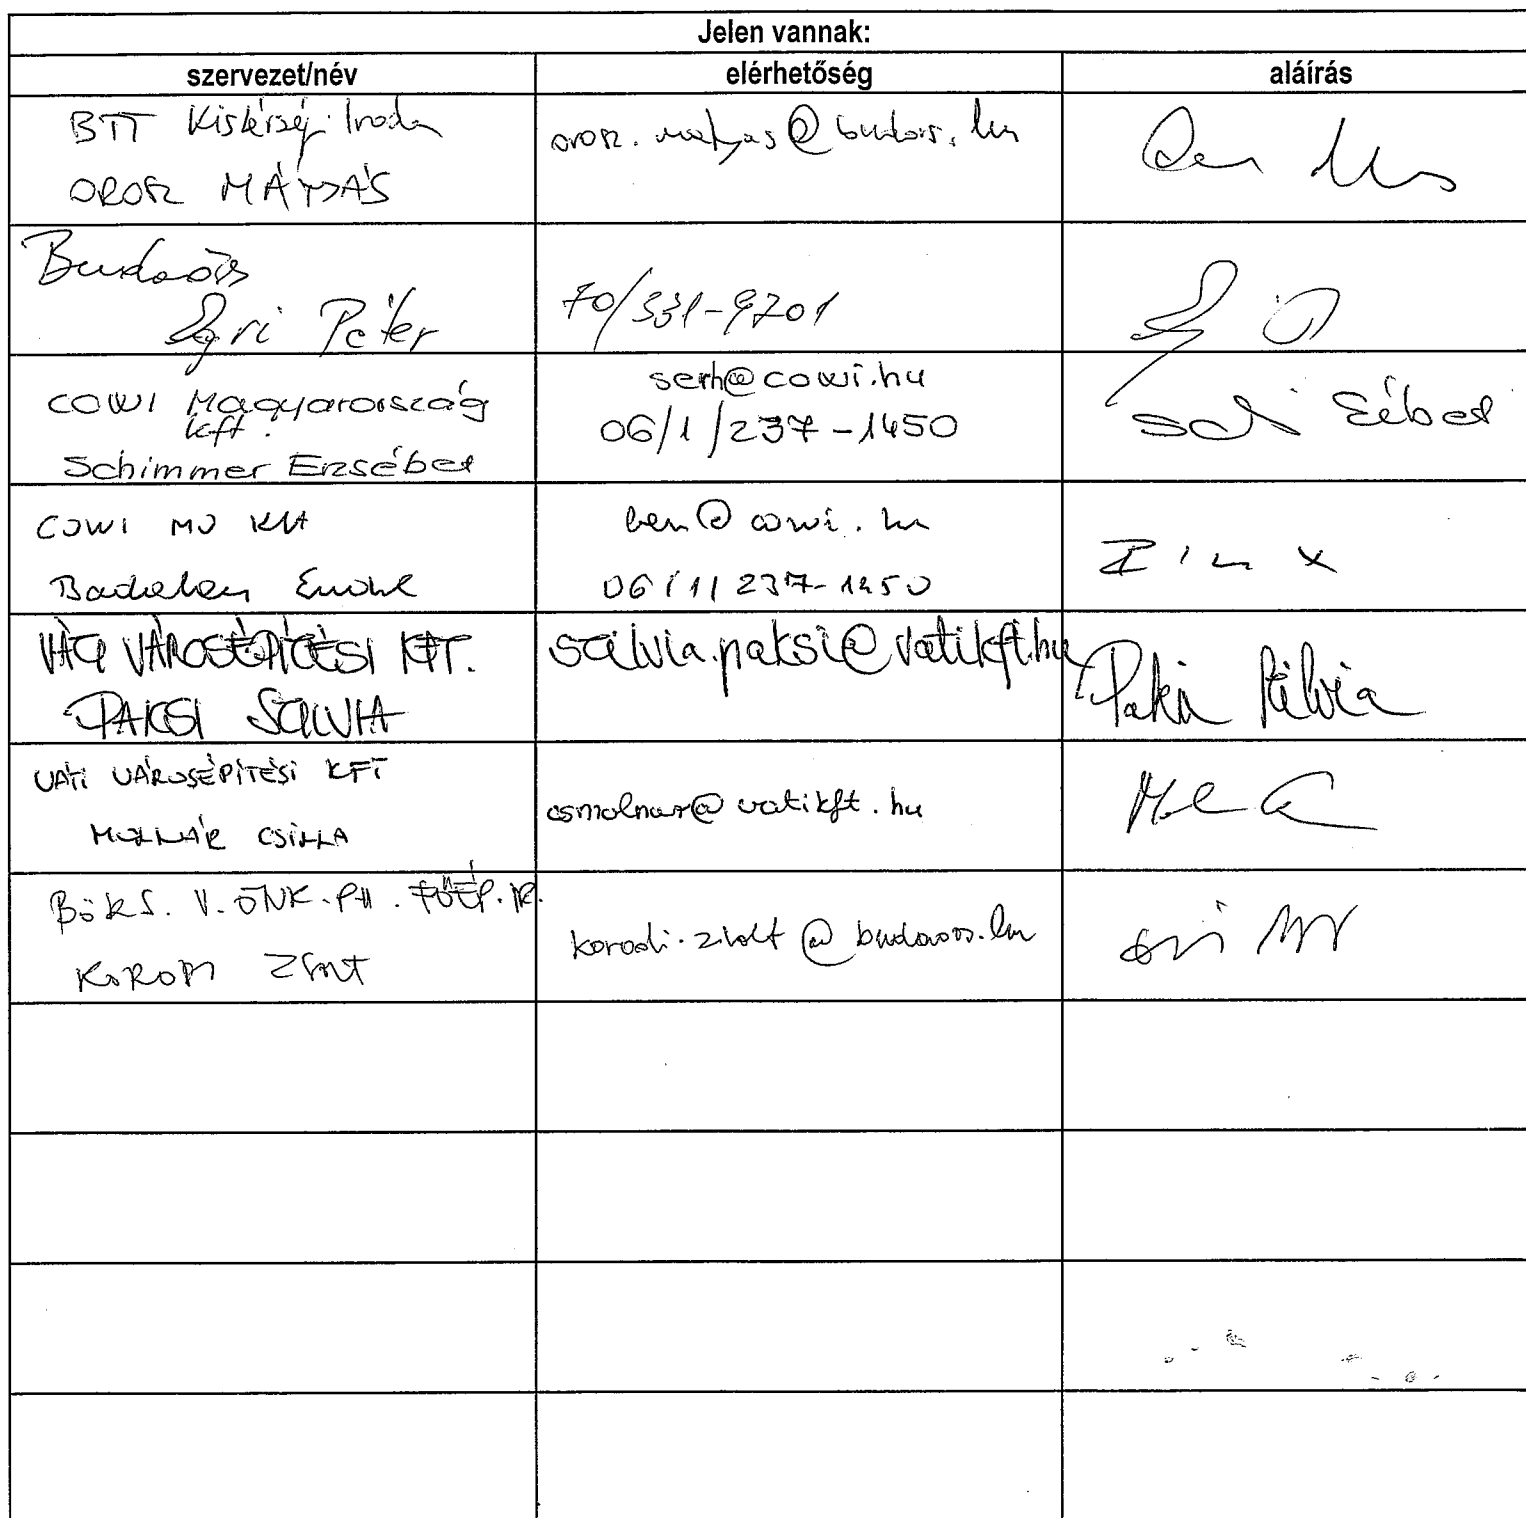 Jelen vannak:
szervezet/név
elérhetőség
aláírás
BTT Kistérségi Iroda
orosz.matyas@budaors.hu
OROSZ MÁTYÁS
Budaörs
Egri Péter
70/331-9701
COWI Magyarország
Kft.
Schimmer Erzsébet
serh@cowi.hu
06/1/237-1450
COWI MO Kft
ben@cowi.hu
06/1/237-1450
VÁTI VÁROSÉPÍTÉSI KFT.
PAKSI SZILVIA
szilvia.paksi@vatikft.hu
Paksi Szilvia
VÁTI VÁROSÉPÍTÉSI KFT
MOLNÁR CSILLA
csmolnar@vatikft.hu
V. ÖNK. PH. FŐÉP. IR.
KORODI ZSOLT
korodi.zsolt@budaors.hu